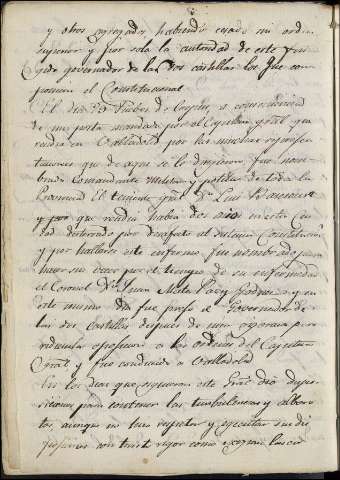 y otros agregados habiendo cesado su orden
superior y por sola la autoridad de este
gobernador de las dos castillas los que com
ponian el Constitucional
El dia 23 Jueves de
de una posta mandada por el Capitan gral que
residia en Valladolid por las muchas representa
taciones que de aqui se le dirigieron fue nom
brado comandante Militar y politico de toda la
Provincia El teniente gral Dn Luis
y por que residia habia dos años en esta Ciu
dad desterrado por desafecto al sistema Constitucional
y por hallarse este enfermo fue nombrado para
hacer sus veces por el tiempo de su enfermedad
el Coronel Dn Juan y en
este mismo dia fue preso el Governador de
las dos Castillas despues de una
ridicula oposicion a las ordenes del Capitan
Gral y fue conducido a Valladolid
En los dias que siguieron este Gral dio dispo
siciones para contener las turbulencias y albo
rotos, aunque no hizo respetar y ejecutar sus dis
posiciones con tanto rigor como exigian las cir